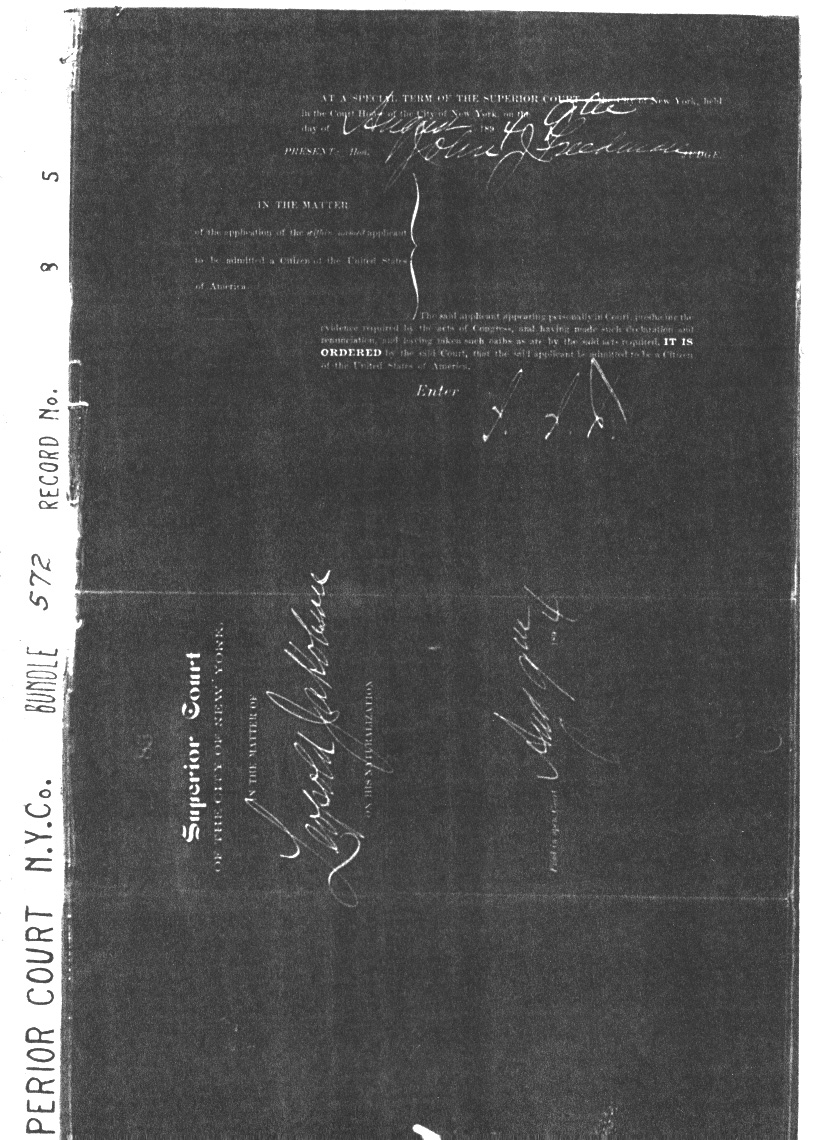 AT A SPECIAL TERM OF THE SUPERIOR COURT of the City of New York, held
in the Court House of the City of New York, on the 9th
day of August 1894
PRESENT: Hon. John J. Freedman JUDGE.
IN THE MATTER
of the application of the within named applicant
to be admitted a Citizen of the United States
of America.
The said applicant appearing personally in Court, producing the
evidence required by the acts of Congress, and having made such declaration and
renunciation, and having taken such oaths as are by the said acts required, IT IS
ORDERED by the said Court, that the said applicant is admitted to be a Citizen
of the United States of America.
Enter
PERIOR COURT N.Y.Co. BUNDLE 572 RECORD No. 8 5
Superior Court
OF THE CITY OF NEW YORK.
IN THE MATTER OF
Leopold
ON HIS NATURALIZATION
Filed in open Court Aug 9th 1894